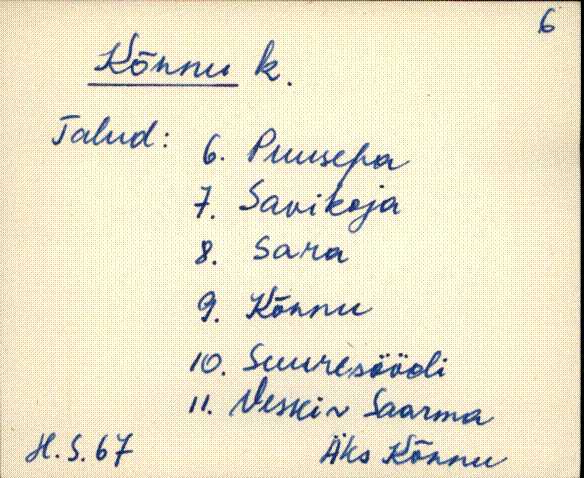 6
Kõnnu k.
Talud: 6. Puusepa
7. Savikoja
8. Sara
9. Kõnnu
10. Suuresöödi
11. Veski ~ Saarma
H. S. 67 Äks Kõnnu